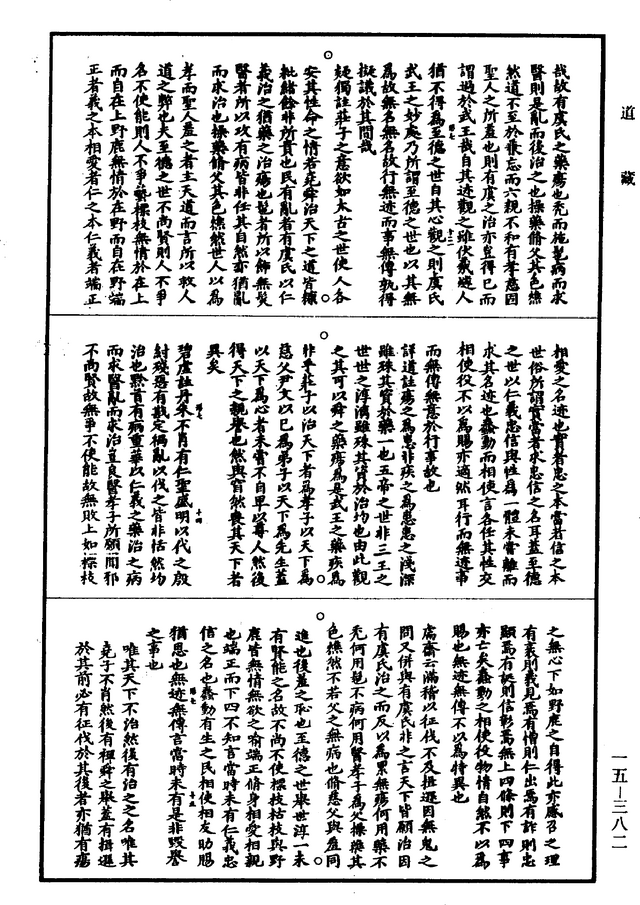 道藏
哉故有虞氏之藥瘍也禿而施髢病而求
醫則是亂而後治之也操藥脩父其色燋
然道不至於兼忘而六親不和有孝慈因
聖人之所羞也則有虞之治亦豈得已而
謂過於武王哉自其迹觀之雖伏羲遂人
猶不得為至德之世自其心觀之則虞氏
武王之妙處乃所謂至德之世也以其無
為故無名無名故行無迹而事無傳孰得
擬議於其間哉
疑獨註莊子之意欲如太古之世使人各
安其性命之情若堯舜治天下之道皆穅
粃緒餘非所貴也民有亂者有虞氏以仁
義治之猶藥之治瘍也髢者所以飾無髮
醫者所以攻有病皆非任其自然亦猶亂
而求治也操藥脩父其色燋然世人以為
孝而聖人羞之者主天道而言所以救人
道之弊也夫至德之世不尚賢則人不爭
名不使能則人不爭藝標枝無情於在上
而自在上野鹿無情於在野而自在野端
正者義之本相愛者仁之本仁義者端正
相愛之名迹也實者忠之本當者信之本
世俗所謂實當者求忠信之名耳蓋至德
之世以仁義忠信與性為一體未嘗離而
求其名迹也蠢動而相使言各任其性交
相使役不以為賜亦適然耳行而無迹事
而無傳無意於行事故也
詳道註瘍之為患非疾之為患患之淺深
雖殊其資於藥一也五帝之世非三王之
世世之淳漓雖殊其資於治均也由此觀
之其可以舜之藥瘍為是武王之藥疾為
非乎莊子以治天下者為孝子以天下為
慈父尹文以已為弟子以天下為先生蓋
以天下為心者未嘗不自卑以尊人然後
得天下之親譽也然與窅然喪其天下者
異矣
碧虛註丹朱不肖有仁聖盛明以代之殷
紂殘暴有戡定禍亂以伐之皆非恬然均
治也黔首有病重華以仁義之藥治之病
而求醫亂而求治豈良醫孝子所願聞邪
不尚賢故無爭不使能故無敗上如標枝
之無心下如野鹿之自得此亦感召之理
有裹則義見焉有憎則仁出焉有詐則忠
顯焉有誕則信彰焉無上四條則下四事
亦亡矣蠢動之相使役物情自然不以為
賜也無迹無傳不以為特異也
鬳齋云滿稽以征伐不及揖遜因無鬼之
問又併與有虞氏非之言天下皆願治因
有虞氏治之而反以為累無瘍何用藥不
禿何用髢不病何用醫孝子為父操藥其
色燋然不若父之無病也脩慈父與羞同
進也後羞之恥也至德之世舉世淳一未
有賢能之名故不尚不使標枝枯枝與野
鹿皆無情無欲之喻端正脩身相愛相親
也端正而下四不知言當時未有仁義忠
信之名也蠢動有生之民相使相友助賜
猶恩也無迹無傳言當時未有是非毀譽
之事也
唯其天下不治然後有治之之名唯其
堯子不肖然後有禪舜之舉蓋有揖遜
於其前必有征伐於其後者亦猶有瘍
一五—三八二